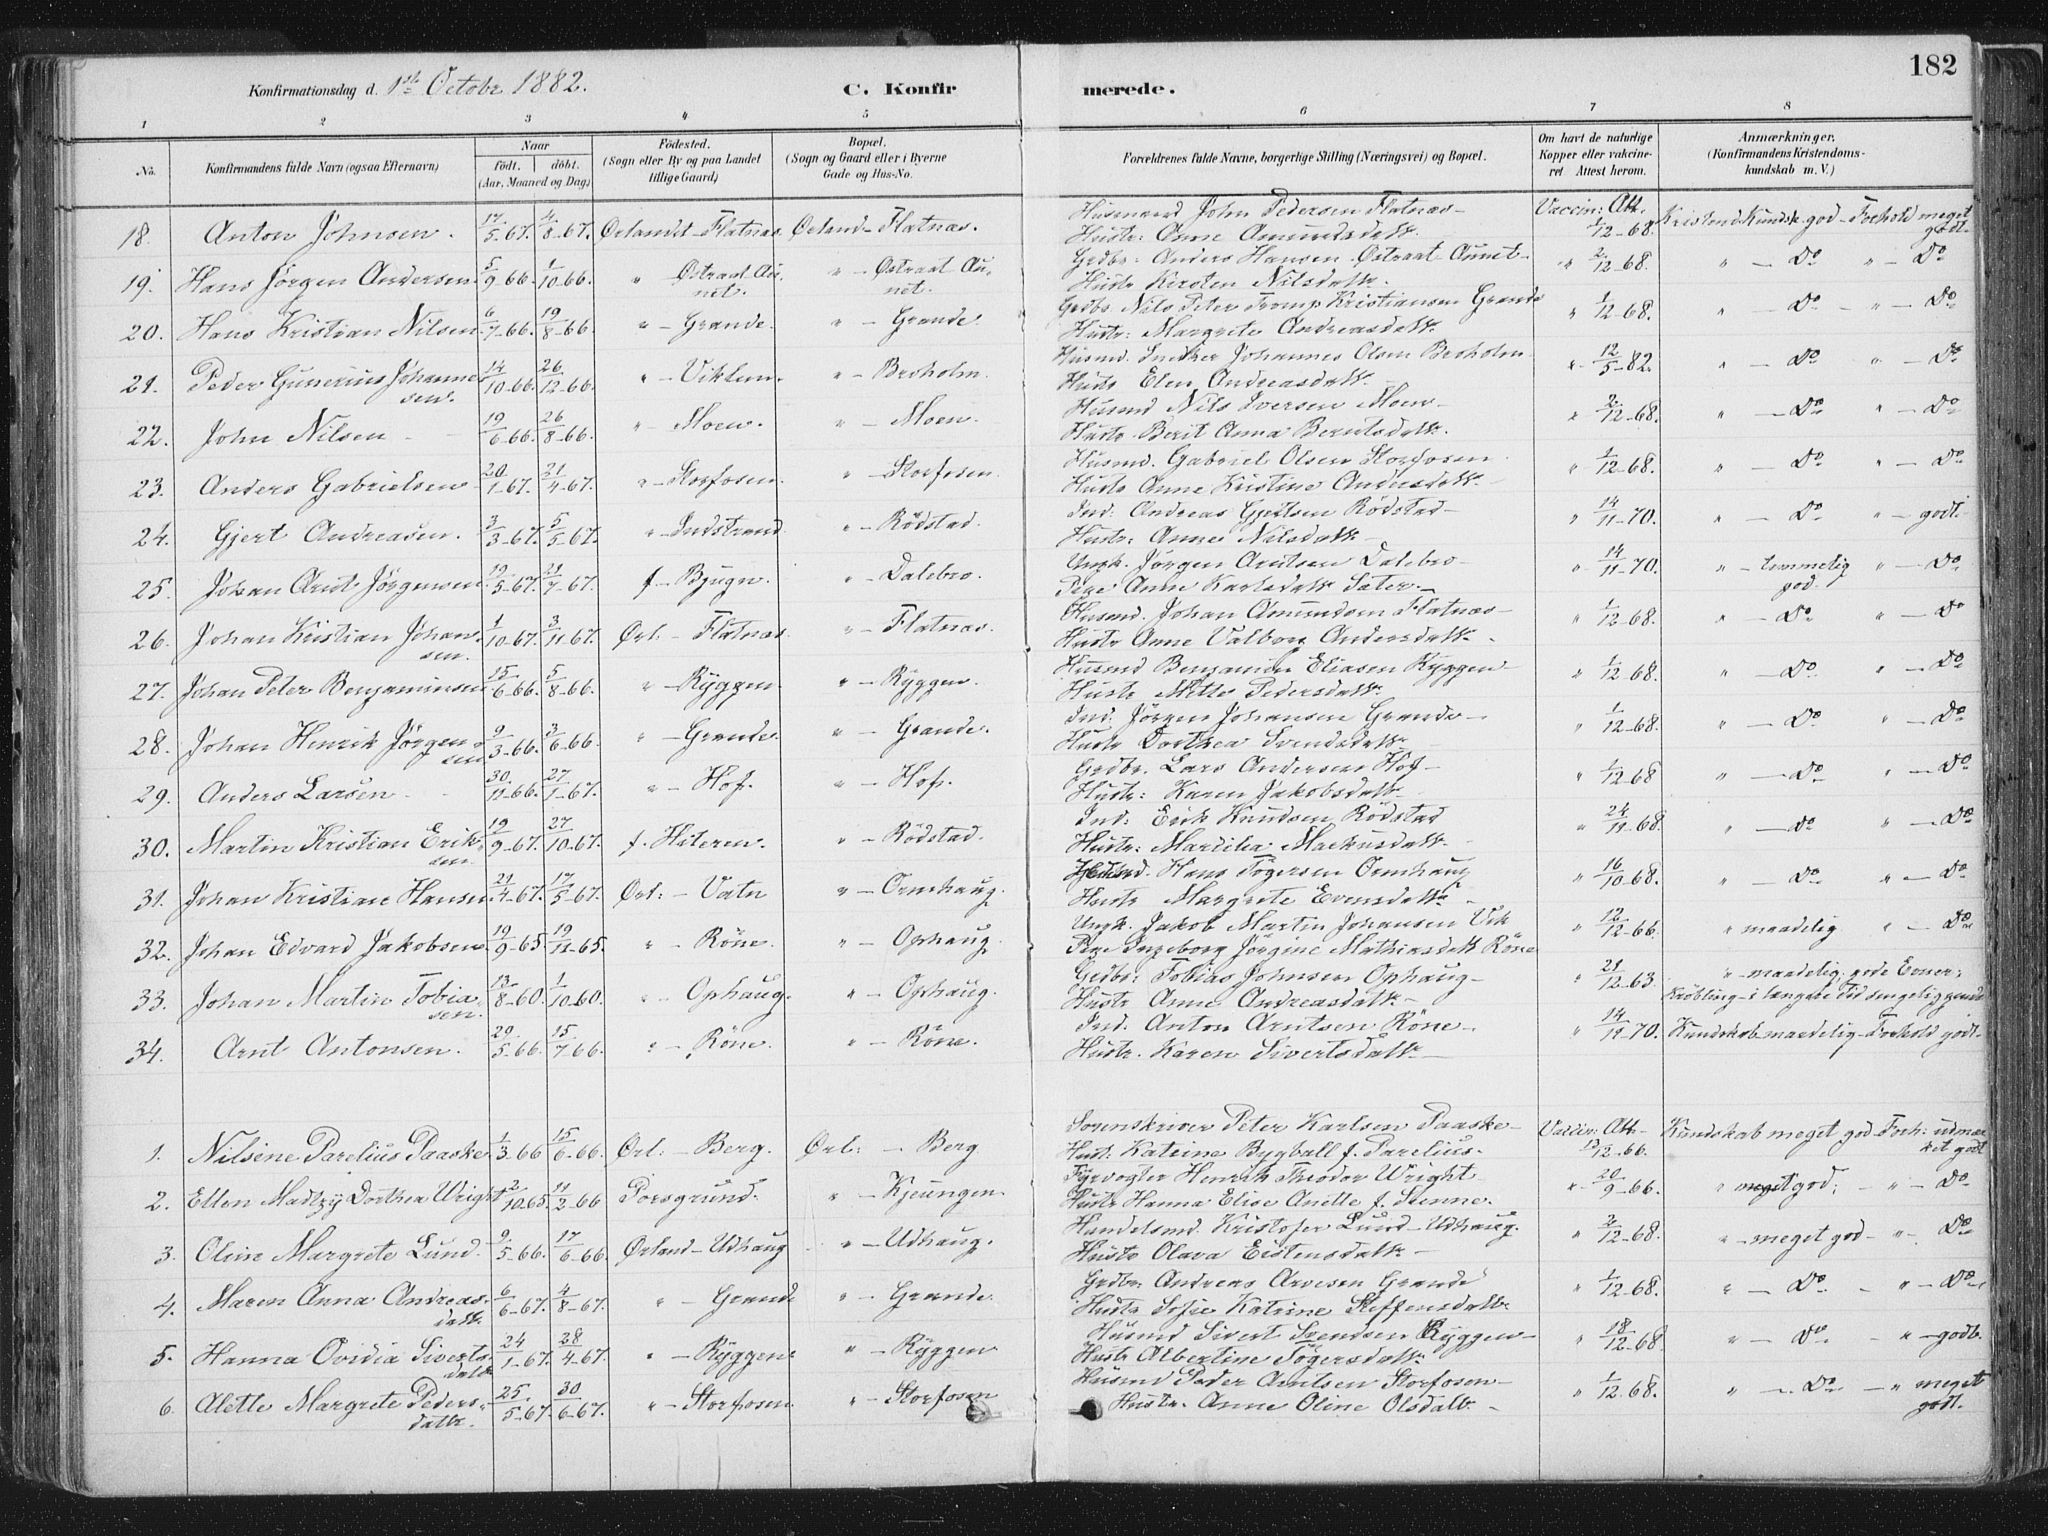 182
Konfirmationsdag d. 1ste Octobr 1882. C. Konfirmerede.
1 2 3 4 5 6 7 8
No. Konfirmandens fulde Navn (ogsaa Efternavn) Naar födt. döbt. (Aar, Maaned og Dag) Födested. (Sogn eller By og paa Landet tillige Gaard) Bopæl. (Sogn og Gaard eller i Byerne Gade og Hus-No. Forældrenes fulde Navne, borgerlige Stilling (Næringsvei) og Bopæl. Om havt de naturlige Kopper eller vakcineret Attest herom. Anmærkninger. (Konfirmandens Kristendomskundskab m. V.)
18. Anton Johnsen. 17/5-67. 4/8-67. Örlandet-Flatnæs. Örland-Flatnæs. Husmand John Pedersen Flatnæs- Vaccin: Att. 1/12-68. Kristend. Kundsk. god - Forhold meget godt.
Hustr: Anne Amundsdatt.
19. Hans Jörgen Andersen. 5/9 66. 1/10-66. " Østraat Aunet. " - Østraat Aunet. Grdbr: Anders Hansen Østraat Aunet- " 2/12-68. " - Do " - Do
Hustr Kirsten Nilsdatt.
20. Hans Kristian Nilsen 6/7-66. 19/8-66. " - Grande. " - Grande. Grdbr Nils Peter Kristiansen Grande " 1/12-68. " - Do - " - Do
Hustr: Margrete Andreasdatt.
21. Peder Gunerius Johannesen. 14/10-66. 26/12-66. " - Viklem. " - Broholm. Husmd. Snedker Johannes Olsen Broholm " 12/5-82. " - Do " - Do
Hustr Elen Andreasdatt.
22. John Nilsen 19/6-66. 26/8-66. " - Moen. " - Moen. Husmd Nils Iversen Moen- " 2/12-68. " - Do " - Do
Hustr Berit Anna Berntsdatt.
23. Anders Gabrielsen 20/1-67. 21/4-67. " - Storfosen. " - Storfosen. Husmd. Gabriel Olsen Storfosen " 1/12-68. " - Do " - Do
Hustr Anne Kristine Andersdatt.
24. Gjert Andreasen. 3/3-67. 5/5-67. " - Indstrand. " - Rödstad. Ind: Andreas Gjertsen Rödstad- " 14/11-70. " - Do " - godt.
Hustr: Anne Nilsdatt-
25. Johan Arnt Jörgensen. 19/5-67. 21/7-67. f. - Bjugn. " - Dalebro. Ungk. Jörgen Arntsen Dalebro- " 14/11-70. " - temmelig god. " - Do
Pige Anne Karlsdatt Sæter.
26. Johan Kristian Johansen. 1/10-67. 3/11-67. Örl. - Flatnæs. " - Flatnæs. Husmd. Johan Amundsen Flatnæs- " 1/12-68. " - Do " - Do
Hustr Anne Valborg Andersdatt.
27. Johan Peter Benjaminsen 15/6-66. 5/8-66. " - Ryggen. " - Ryggen. Husmd Benjamin Eliasen Ryggen- " 1/12-68. " - Do " - Do
Hustr Mette Pedersdatt.
28. Johan Henrik Jörgensen 9/3-66. 3/6-66. " - Grande. " - Grande. Ind: Jörgen Johansen Grande- " 1/12-68. " - Do " - Do
Hustr Dorthea Svendsdatt.
29. Anders Larsen 30./11-66. 27/1-67. " - Hof. " - Hof. Grdbr. Lars Andersen Hof- " 1/12-68 " - Do " - Do
Hustr: Karen Jakobsdatt.
30. Martin Kristian Eriksen 19/9-67. 27/10-67. f. Hiteren. " - Rödstad. Ind: Erik Knudsen Rödstad " 24/11-68. " - Do " - Do
Hustr: Mardilia Markusdatt.
31. Johan Kristian Hansen. 21/4-67. 17/5-67. Örl: - Vatn " - Ormhaug. Hans Tögersen Ormhaug " 16/10-68. " - Do " - Do
Hustr Margrete Evensdatt.
32. Johan Edvard Jakobsen 19/9-65 19/11-65. " - Röne. " - Ophaug. Ungk. Jakob Martin Johansen Vik " 12/12-66. " maadelig " - Do
Pige Ingeborg Jörgine Mathiasdatt Röne
33. Johan Martin Tobiasen. 13/8-60. 1/10-60. " - Ophaug. " - Ophaug. Grdbr: Tobias Johnsen Ophaug- " 21/12-63. " - maadelig: gode Evner:
Hustr Anne Andreasdatt- Kröbling - i længere Tid sengeliggende
34. Arnt Antonsen. 29/5-66. 15/7-66. " - Röne. " - Röne. Ind. Anton Arntsen Röne- " 14/11-70. Kundskab maadelig - Forhold godt.
Hustr. Karen Sivertsdatt-
1. Nilsine Parelius Paaske 1/3-66 15/6-66. Örl: - Berg. Örl: - Berg Sorenskriver Peter Karlsen Paaske- Vaccin: Att- 13/12-66. Kundskab meget god Forh: udmærket godt
Hustr: Katrine Bygball f. Parelius.
2. Ellen Madtzy Dorthea Wright 2/10-65. 11/2-66 Porsgrund. " - Kjeungen. Fyrvogter Henrik Theodor Wright " 20/9-66. " meget god: - " - Do
Hustr Hanna Elise Anette f. Senne.
3. Oline Margrete Lund. 9/5-66. 17/6-66. Örland - Udhaug " - Udhaug. Handelsmd. Kristofer Lund - Udhaug. " 2/12-68. " - meget god - " - Do
Hustr Olava Eistensdatt-
4. Maren Anna Andreasdatt. 6/6-67. 4/8-67. " - Grande " - Grande. Grdbr: Andreas Arvesen Grande " 1/12-68. " - Do - " - Do
Hustr Sofie Katrine Steffensdatt.
5. Hanna Ovidia Sivertsdatt 24/1-67. 28/4-67. " - Ryggen. " - Ryggen Husmd Sivert Svendsen Ryggen- " 18/12-68. " - Do " - godt.
Hustr Albertine Tögersdatt.
6. Alette Margrete Pedersdatt. 25./5-67. 30/6-67. " - Storfosen. " - Storfosen Husmd Peder Arntsen Storfosen- " 1/12-68. " - Do - " meget godt.
Hustr. Anne Oline Olsdatt -